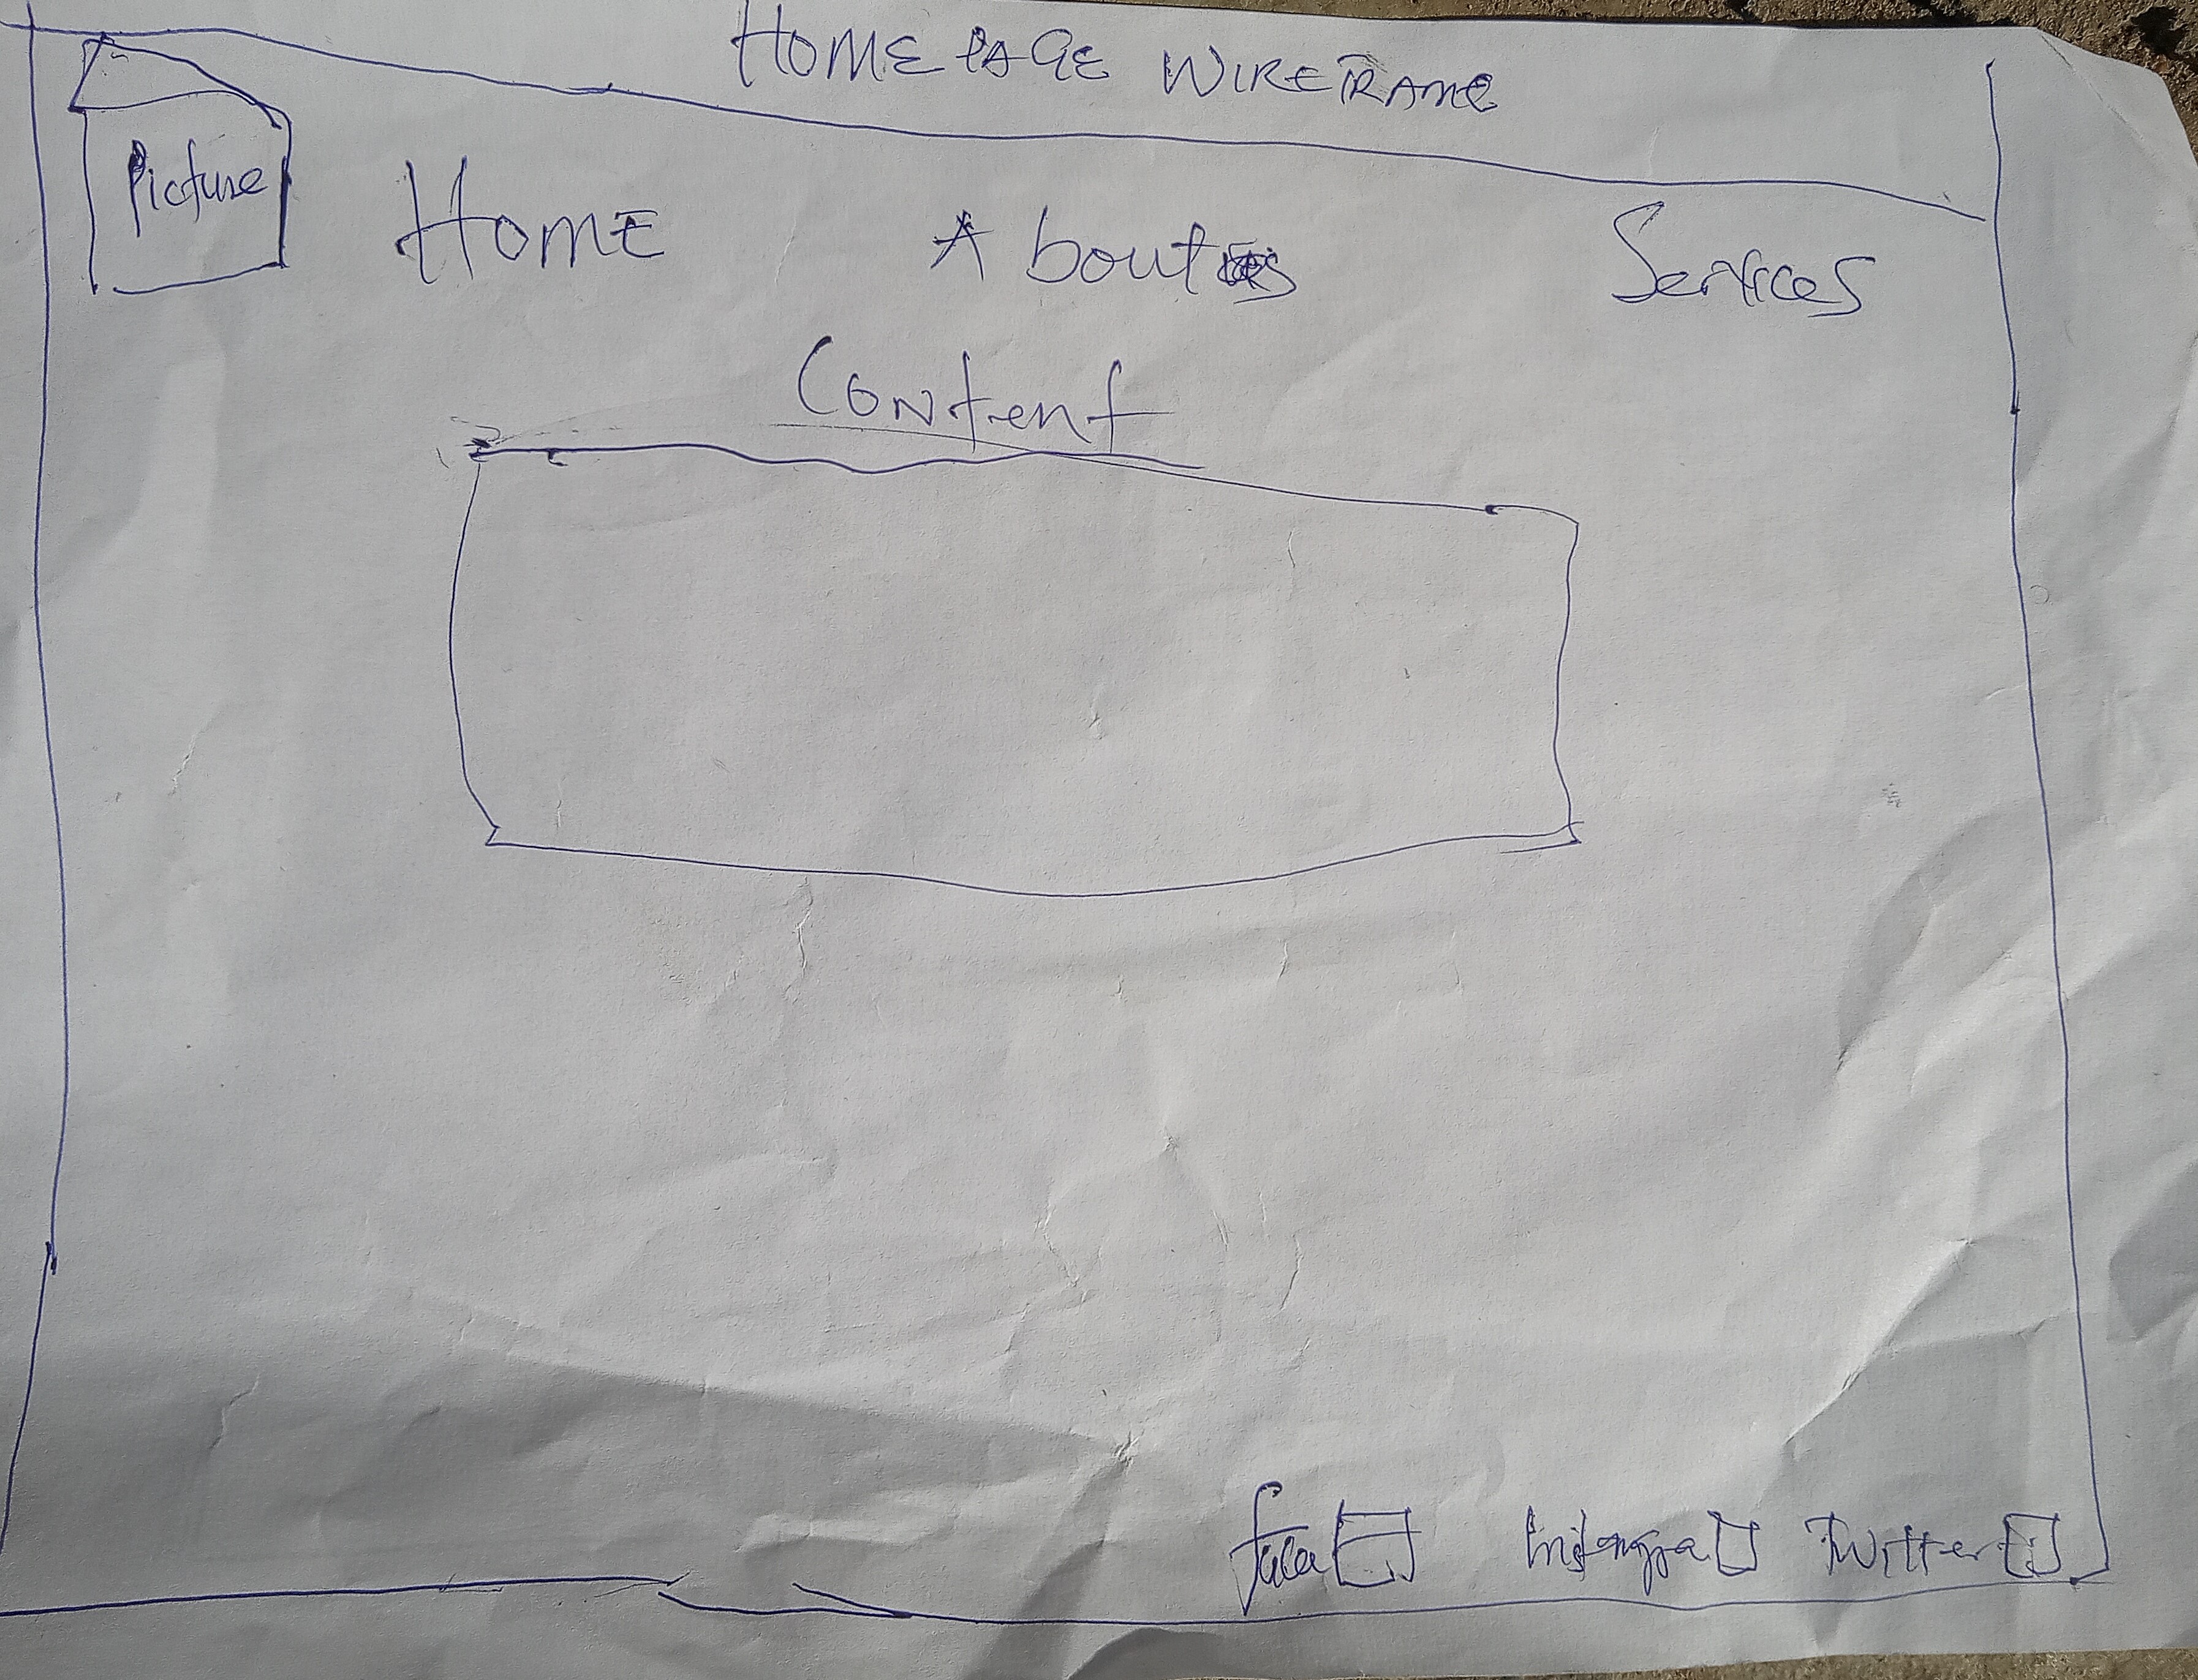 HOMEPAGE WIREFRAME
Picture
Home About Services
Content
face Instangra Twitter